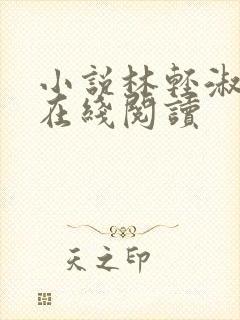 小說林輕淑
在綫閱讀
天之印